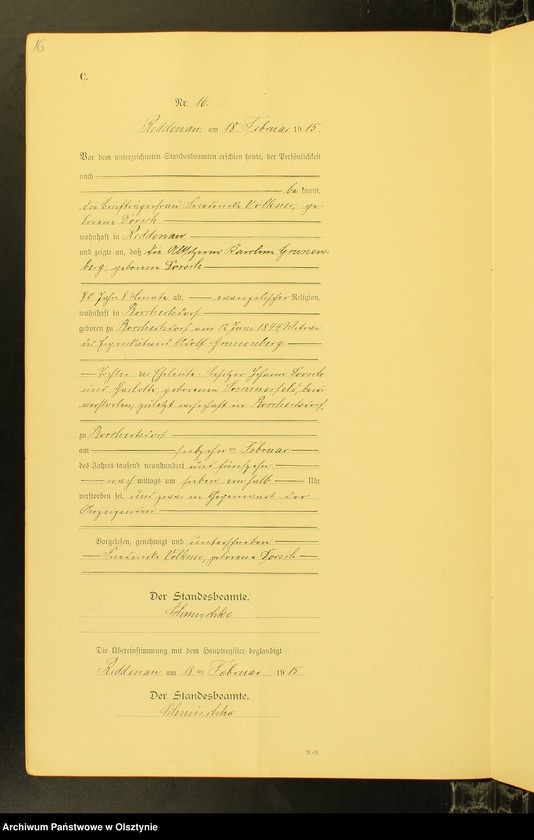 16
C.
Nr. 16.
Reddenau am 18. Februar 1915.
Vor dem unterzeichneten Standesbeamten erschien heute, der Persönlichkeit
nach
be kannt,
die Friederike Völkner, ge-
borene Dorsch
wohnhaft in Reddenau
und zeigte an, daß die Altsitzerin Karoline Grunen-
berg, geborene Dorsch
70 Jahr 8 Monate alt, evangelischer Religion,
wohnhaft in Borchertsdorf
geboren zu Borchertsdorf am Juni 1844 Witwe
des Adolf Grunenberg
Tochter der Eheleute Besitzer Johann Dorsch
und Charlotte geborenen Sommerfeld, beide
verstorben, zuletzt wohnhaft in Borchertsdorf,
zu Borchertsdorf
am siebzehnten Februar
des Jahres tausend neunhundert und fünfzehn
nach mittags um sieben einhalb Uhr
verstorben sei, und zwar in Gegenwart der
Anzeigenden
Vorgelesen, genehmigt und unterschrieben
Friederike Völkner, geborene Dorsch
Der Standesbeamte.
Die Übereinstimmung mit dem Hauptregister beglaubigt
Reddenau am 18 ten Februar 1915.
Der Standesbeamte.
Archiwum Państwowe w Olsztynie